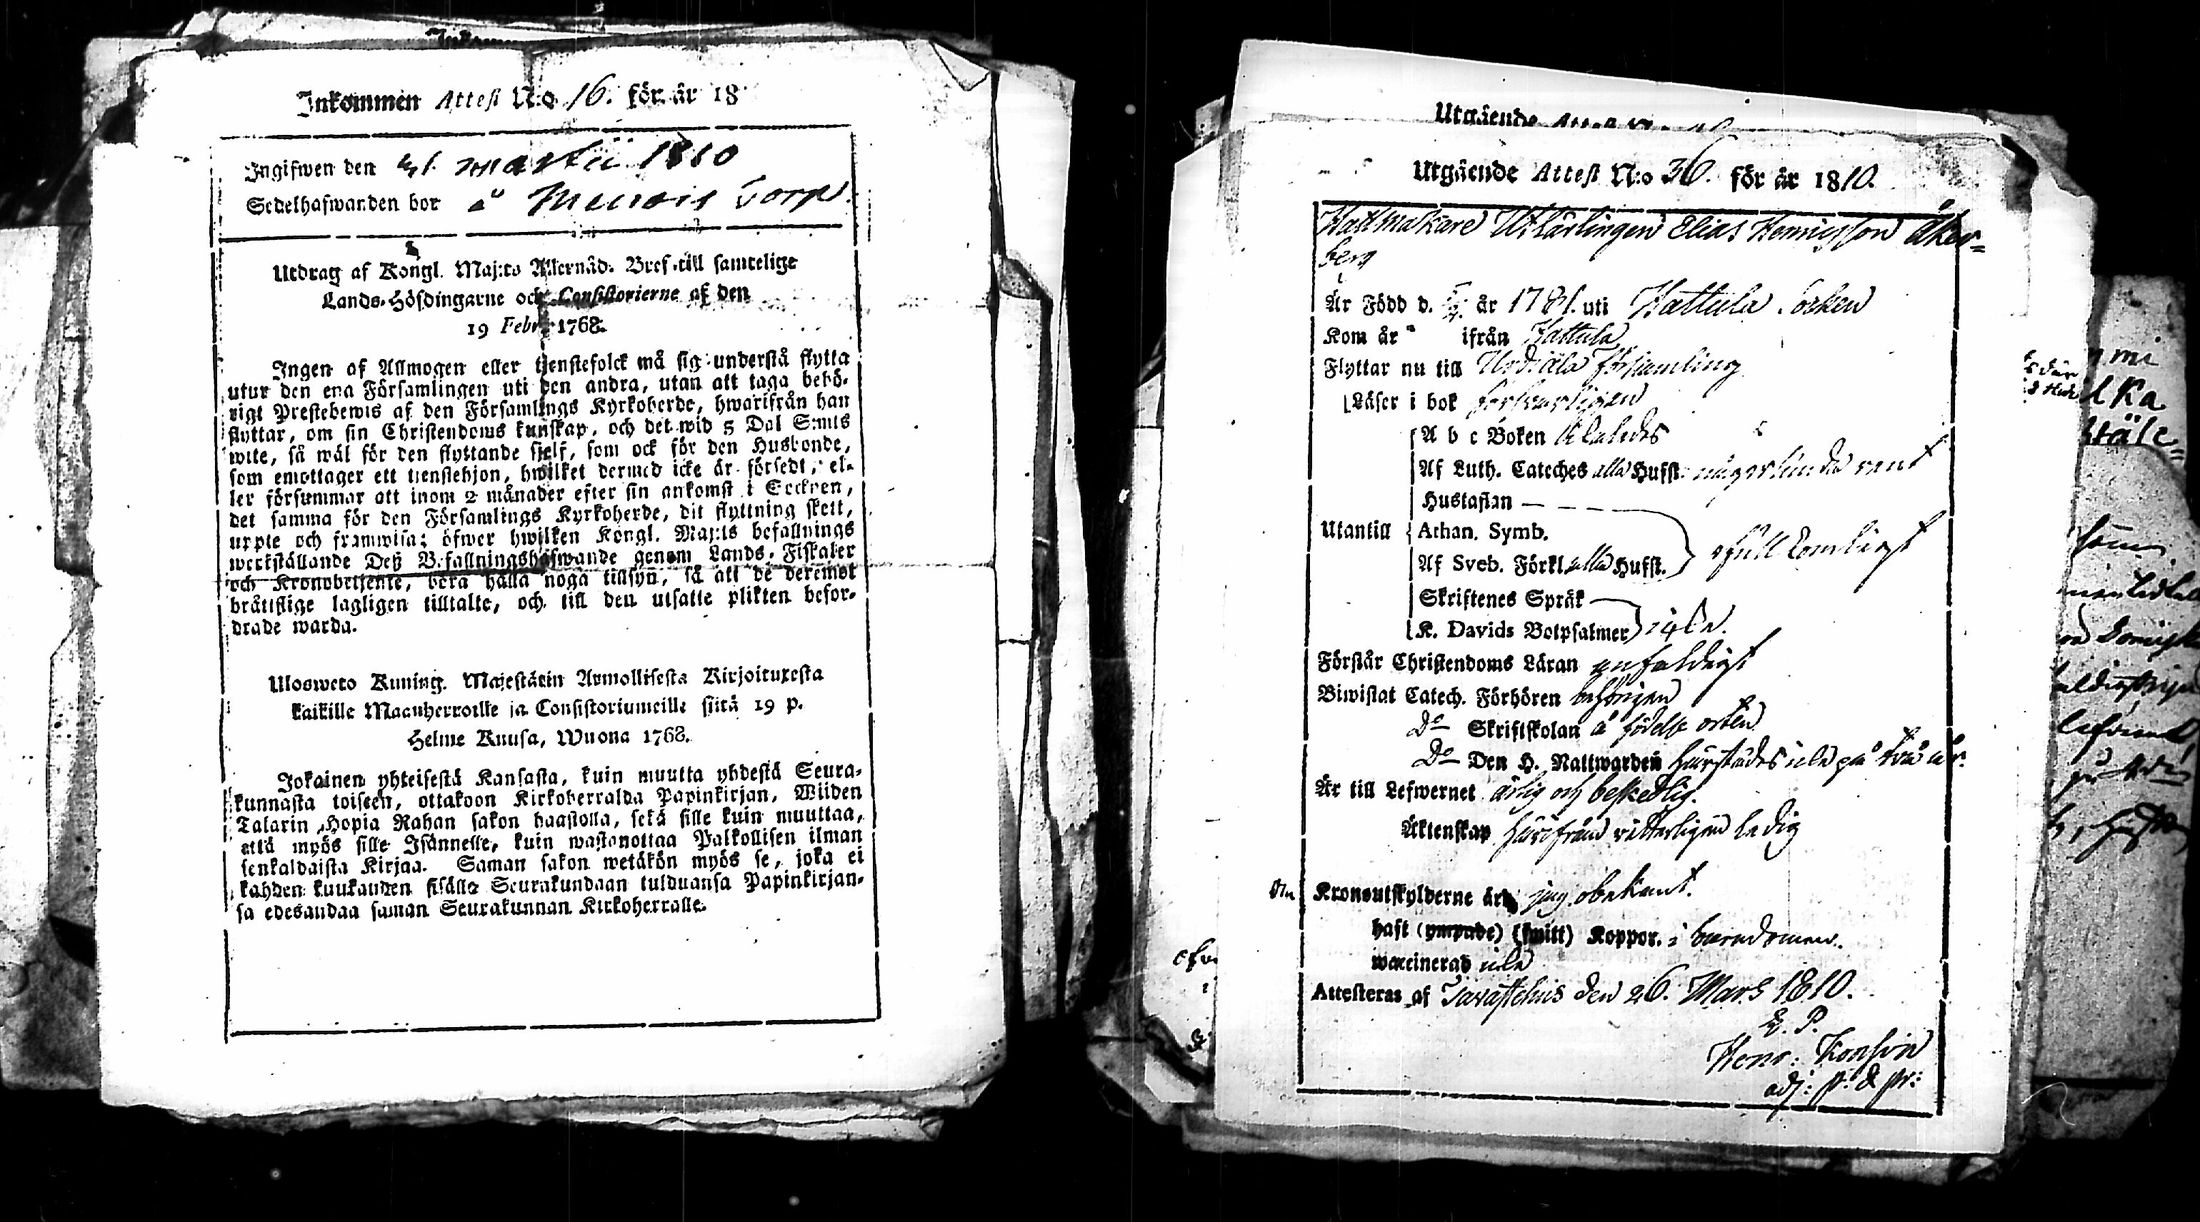 Inkommen Attest N:o 16. för år 18
Ingifwen den 31. martii 1810
Sedelhafwanden bor å Torp
Utdrag af Kongl. Maj:ts Allernåd. Bref till samtelige
Lands-Höfdingarne och Consistorierne af den
19 Febr. 1768.
Ingen af Allmogen eller tjenstefolck må sig understå flytta
utur den ena Församlingen uti den andra, utan att taga behö-
rigt Prestebewis af den Församlings Kyrkoherde, hwarifrån han
flyttar, om sin Christendoms kunskap, och det wid 5 Dal S:mts
wite, så wäl för den flyttande sjelf, som ock för den Husbonde,
som emottager ett tienstehjon, hwilket dermed icke är försedt, el-
ler försummar att inom 2 månader efter sin ankomst i Socknen,
det samma för den Församlings Kyrkoherde, dit flyttning skett,
uppte och framwisa; öfwer hwilken Kongl. Maj:ts befallnings
werkställande Deß Befallningshafwande genom Lands-Fiskaler
och Kronobetjente, böra hålla noga tillsyn, så att de deremot
bråttslige lagligen tilltalte, och till den utsatte plikten befor-
drade warda.
Ulosweto Kuning. Majestätin Armollisesta Kirjoituxesta
kaikille Maanherroille ja Consistoriumeille siitä 19 p.
Helme Kuusa, Wuona 1768.
Jokainen yhteisestä Kansasta, kuin muutta yhdestä Seura-
kunnasta toiseen, ottakoon Kirkoherralda Papinkirjan, Wiiden
Talarin Hopia Rahan sakon haastolla, sekä sille kuin muuttaa,
että myös sille Isännelle, kuin wastanottaa Palkollisen ilman
senkaldaista Kirjaa. Saman sakon wetäkön myös se, joka ei
kahden kuukauden sisälle Seurakundaan tulduansa Papinkirjan-
sa edesandaa saman Seurakunnan Kirkoherralle.
Utgående Attest N:o 36. för år 1810.
Hattmakare Utlärlingen Elias Henricsson Åker-
berg
Är Född d. år 1781. uti Hattula Socken
Kom år ifrån Hattula
Flyttar nu till Urdiala församling
Läser i bok försvarligen
A b c Boken
Af Luth. Cateches alla Hufst. någorlunda rent
Hustaflan
Utantill Athan. Symb.
Af Sveb. Förkl. alla Hufst. ofullkomligt
Skriftenes Språk
K. Davids Botpsalmer icke.
Förstår Christendoms Läran enfaldigt
Biwistat Catech. Förhören behörigen
Do Skriftskolan å födelse orten
Do Den H. Nattwarden härstädes icke på två år.
Är till Lefwernet ärlig och beskedlig.
Äktenskap härifrån vitterligen ledig
Om Kronoutskylderne är jag obekant.
haft (ympade) (smitt) Koppor. i barndomen.
waccinerad icke
Attesteras af Tavastehus den 26. Mars 1810.
E. P.
Henr: Konsin
adj: p: & pr: